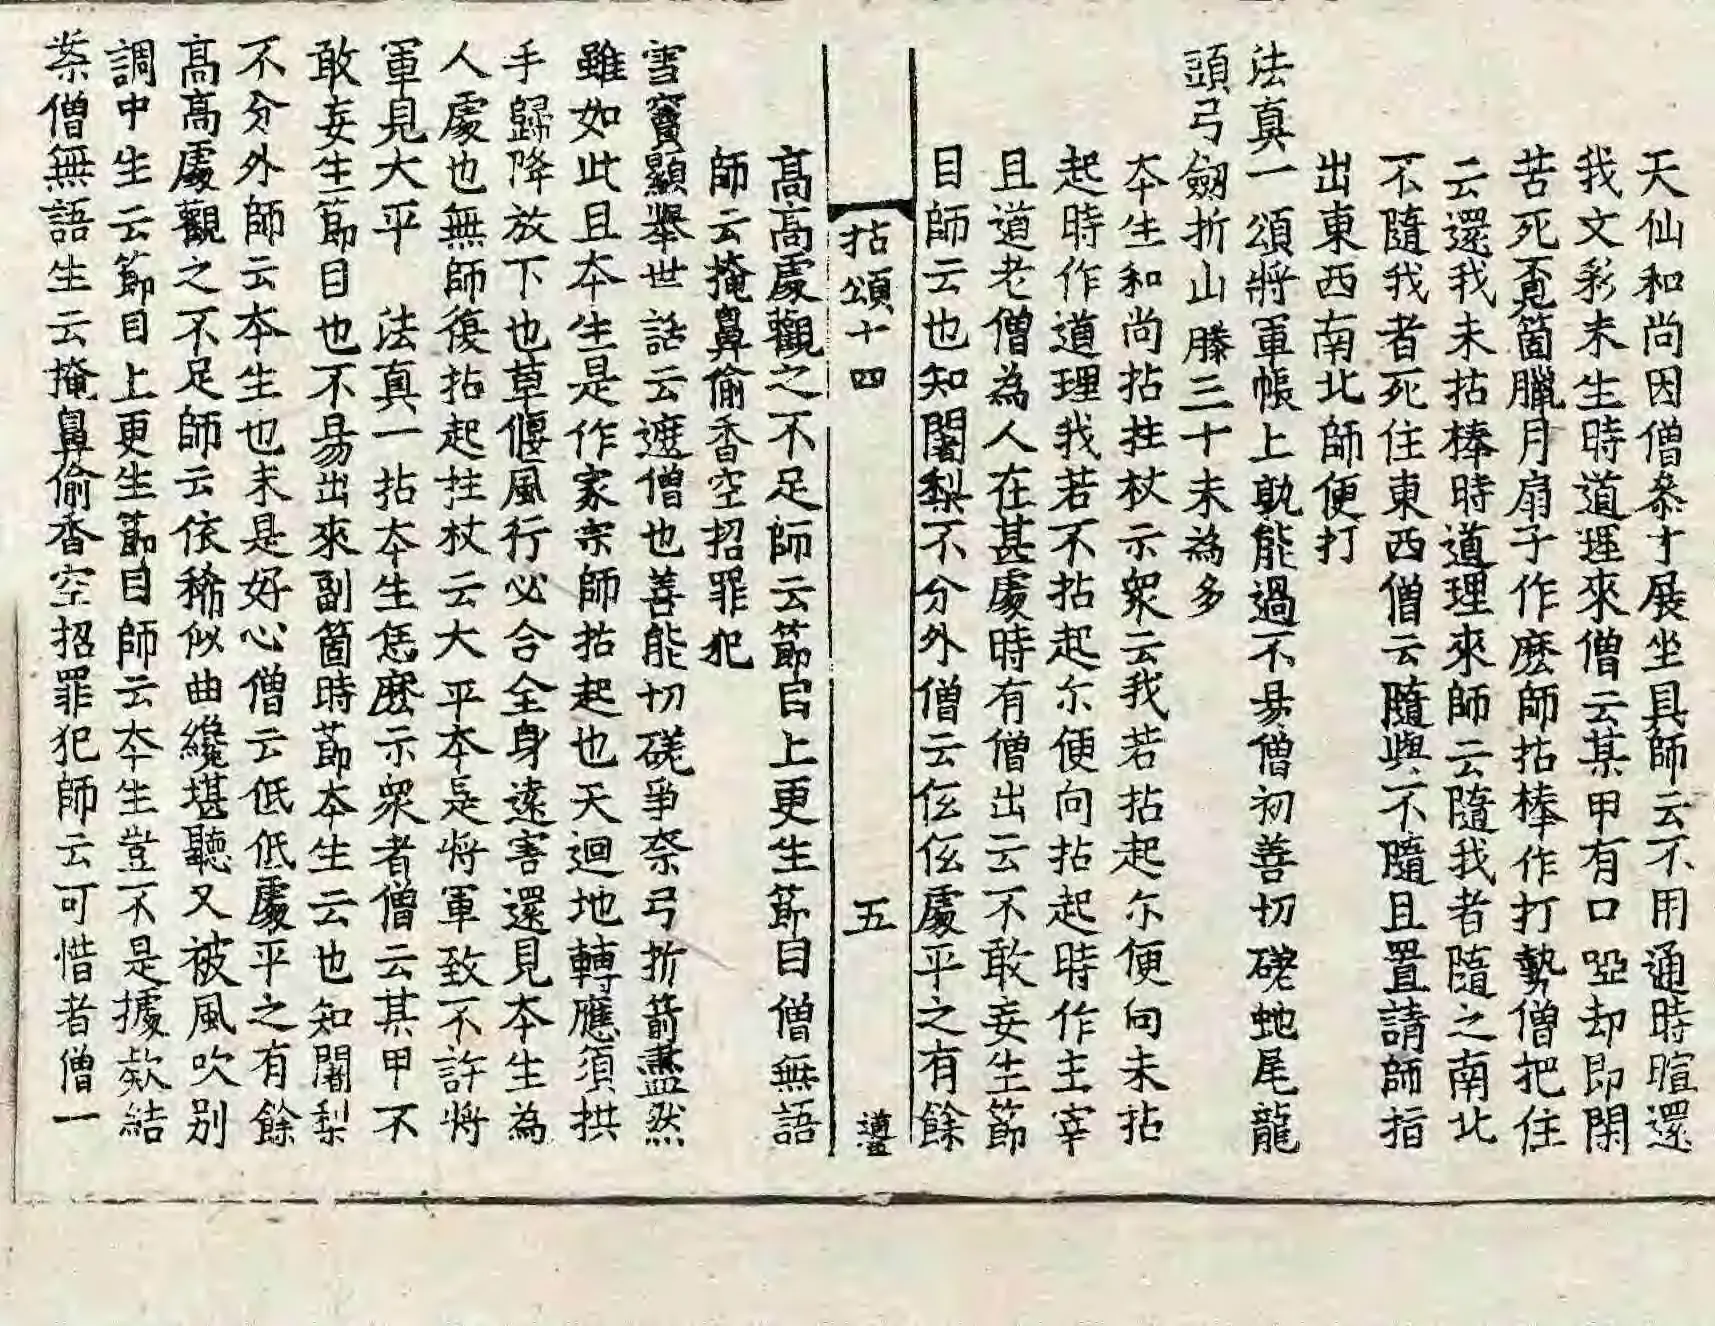 天仙和尚因僧叅才展坐具師云不用通時暄還
我文彩未生時道理來僧云某甲有口啞却即閑
苦死覔箇臘月扇子作麽師拈棒作打勢僧把住
云還我未拈棒時道理來師云隨我者隨之南北
不隨我者死住東西僧云隨與不隨且置請師指
出東西南北師便打
法真一頌將軍帳上孰能過不易僧初善切磋虵尾龍
頭弓劒折山藤三十未為多
夲生和尚拈拄杖示衆云我若拈起尒便向未拈
起時作道理我若不拈起尒便向拈起時作主宰
且道老僧為人在甚處時有僧出云不敢妄生節
目師云也知闍梨不分外僧云低低處平之有餘
拈頌十四
五
高高處觀之不足師云節目上更生節目僧無語
師云掩鼻偷香空招罪犯
雪竇顯舉世話云遮僧也善能切磋爭柰弓折箭盡然
雖如此且夲生是作家宗師拈起也天迴地轉應須拱
手歸降放下也草偃風行必合全身遠害還見夲生為
人處也無師復拈起拄杖云大平夲是將軍致不許將
軍見大平　法真一拈夲生恁麽示衆者僧云某甲不
敢妄生節目也不易出來副箇時節夲生云也知闍梨
不分外師云夲生也未是好心僧云低低處平之有餘
高高處觀之不足師云依稀似曲纔堪聽又被風吹别
調中生云節目上更生節目師云夲生豈不是據欵結
案僧無語生云掩鼻偷香空招罪犯師云可惜者僧一